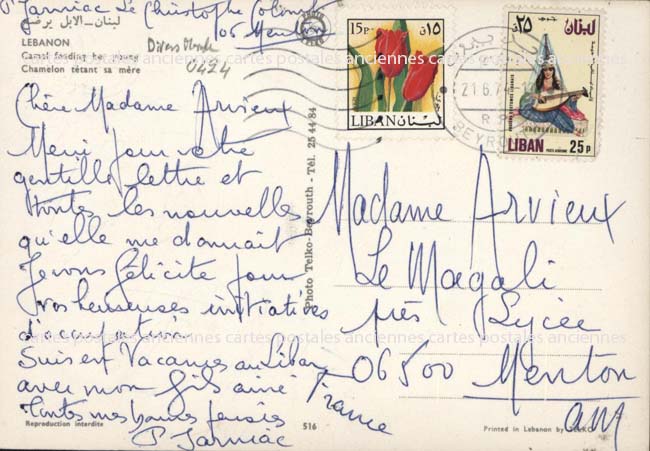 P. Jarniac Le Christophe Colomb
06 Menton
لبنان - الابل يرضع
LEBANON
Camel feeding her young
Chamelon tétant sa mère
Divers
0424
Chère Madame Arvieux
Merci pour votre
gentille lettre et
toutes les nouvelles
qu'elle me donnait
Je vous félicite pour
vos heureuses initiatives
d'occupation
Suis en Vacances au Liban
avec mon fils ainé
Toutes mes bonnes pensées
P Jarniac
Reproduction interdite
516
Photo Telko-Beyrouth - Tél. 25 44 84
15p
١٥ ق
LIBAN لبنان
21.6.7
R.P.
BEYROUTH
٢٥ ق
لبنان
LIBAN
25p
POSTE AERIENNE
Madame Arvieux
Le Magali
près Lycée
06500 Menton
AM
France
Printed in Lebanon by TELKO
cartes postales anciennes cartes postales anciennes cartes postales anciennes cartes postales anciennes